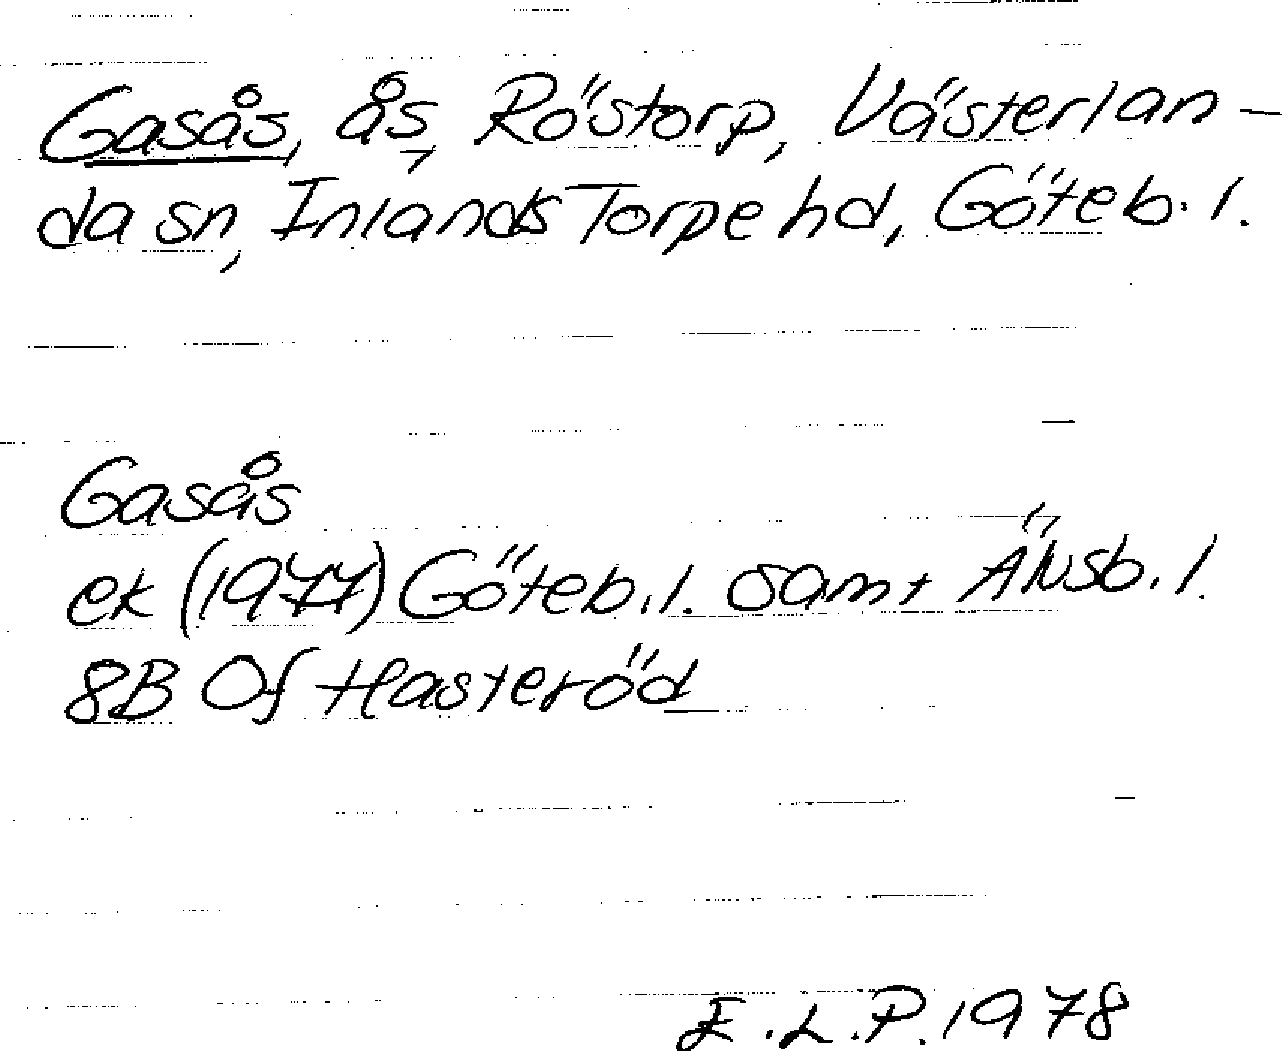 Gasås, ås, Röstorp, Västerlan-
da sn, Inlands Torpe hd, Göteb. l.
Gasås
ek (1977) Göteb. l. samt Älvsb. l.
8B 0f Hasteröd
E.L.P. 1978